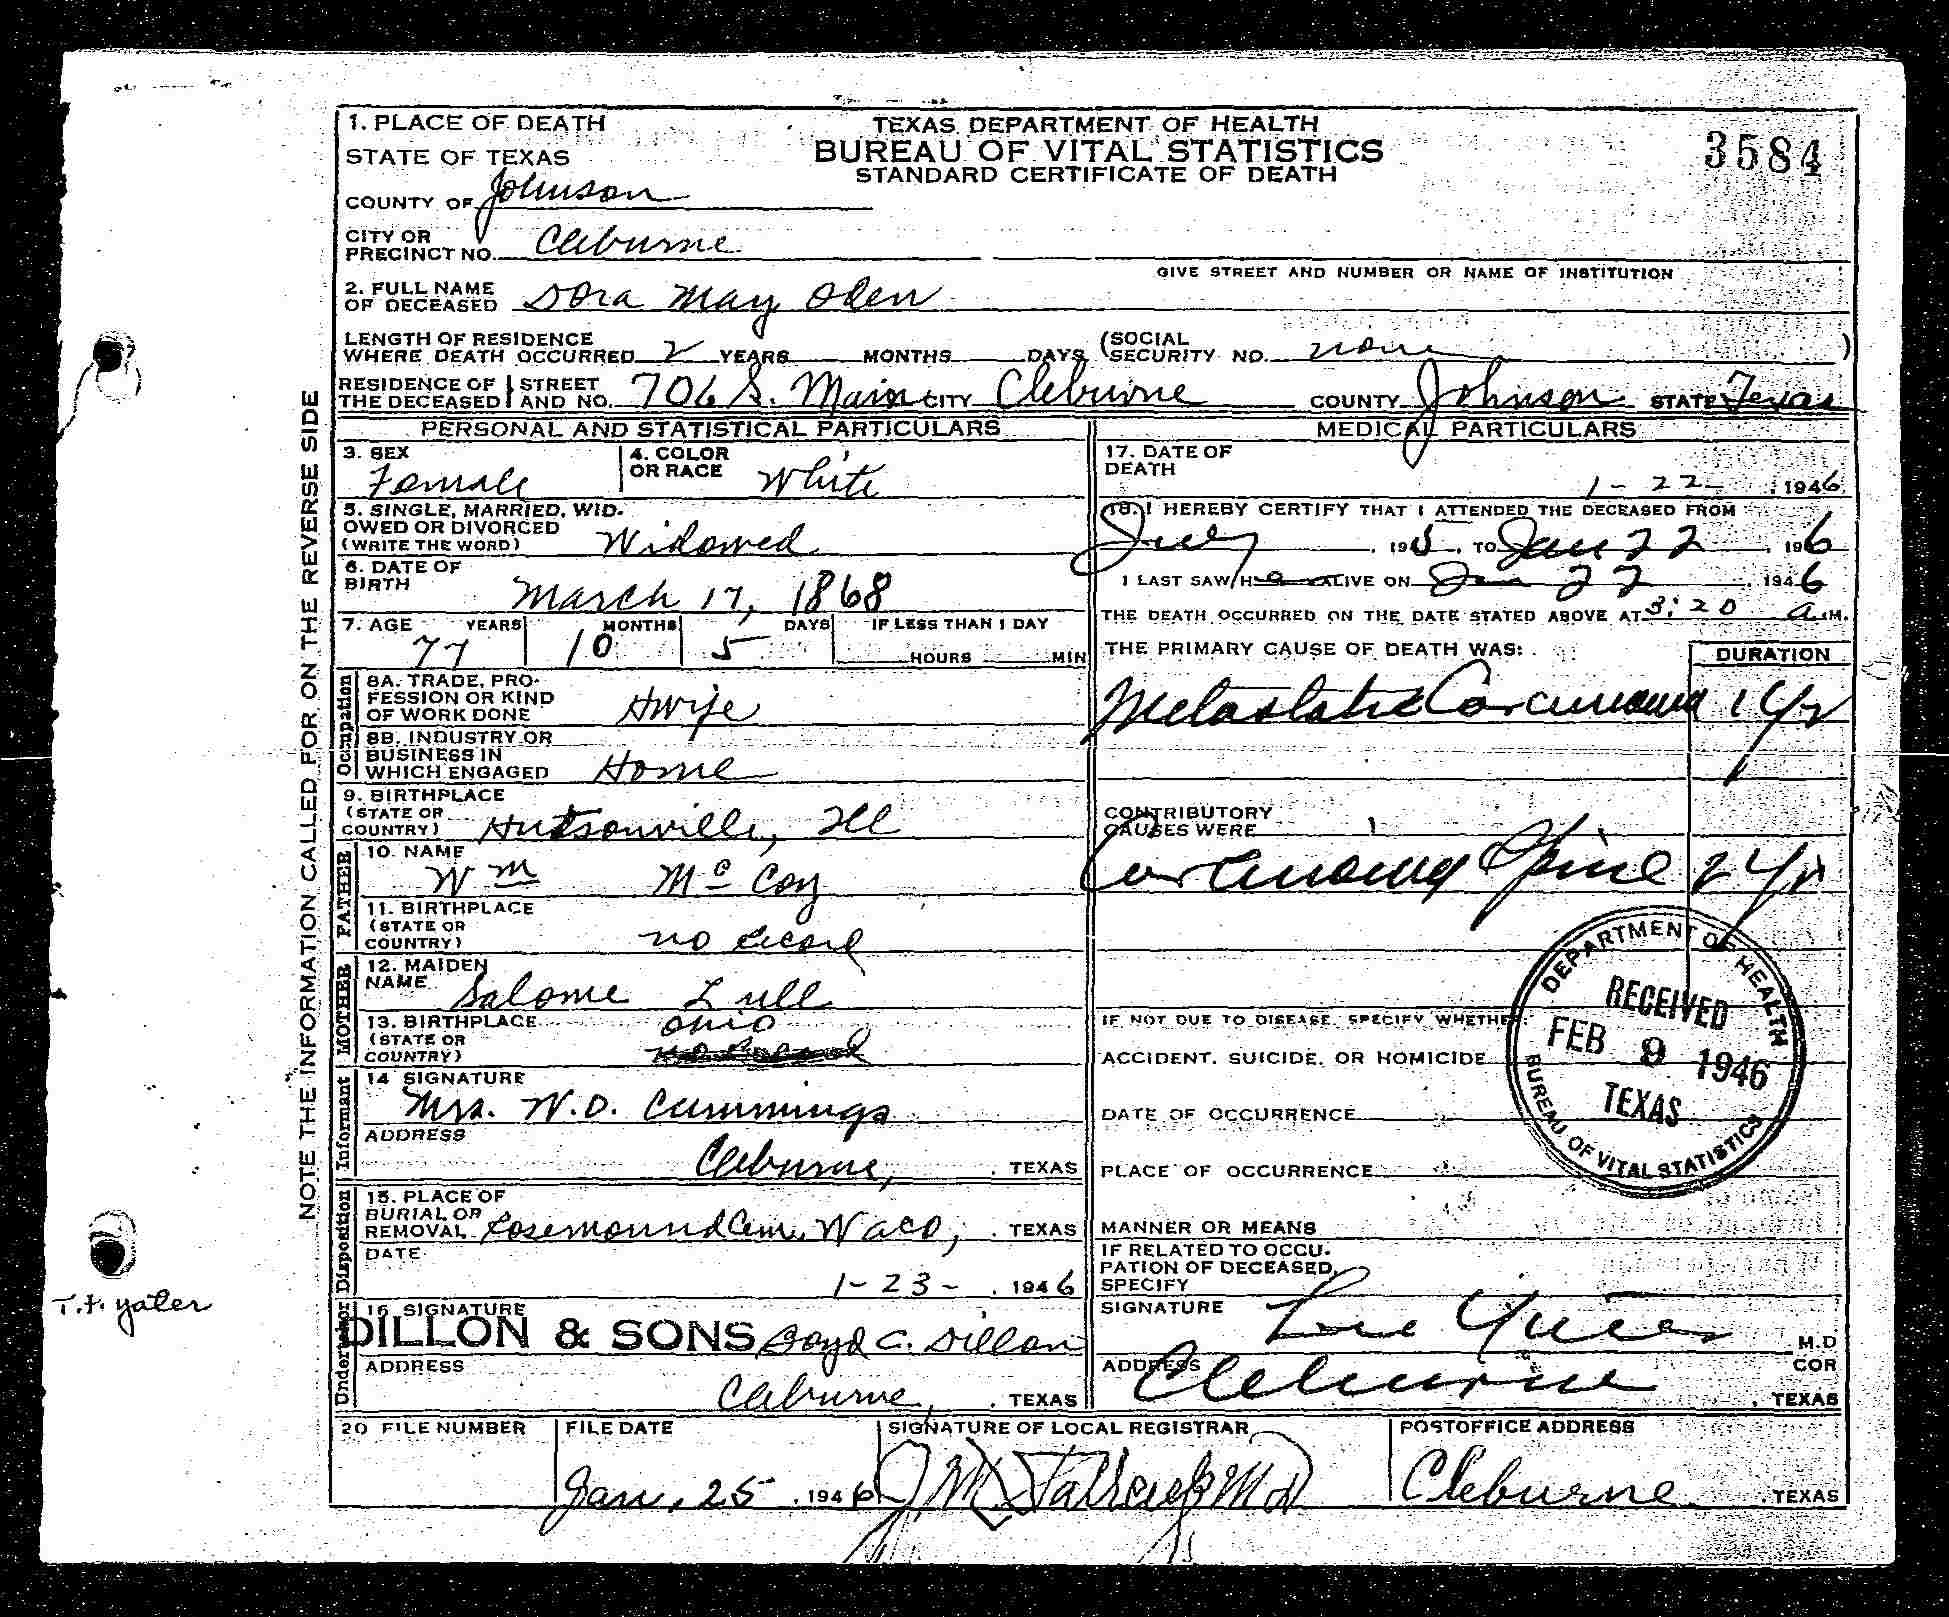 1. PLACE OF DEATH
STATE OF TEXAS
COUNTY OF Johnson
CITY OR
PRECINCT NO. Cleburne
TEXAS DEPARTMENT OF HEALTH
BUREAU OF VITAL STATISTICS
STANDARD CERTIFICATE OF DEATH
3584
GIVE STREET AND NUMBER OR NAME OF INSTITUTION
2. FULL NAME
OF DECEASED Dora May Oden
LENGTH OF RESIDENCE
WHERE DEATH OCCURRED 2 YEARS MONTHS DAYS (SOCIAL
SECURITY NO. none )
RESIDENCE OF THE DECEASED STREET AND NO. 706 S. Main CITY Cleburne COUNTY Johnson STATE Texas
NOTE THE INFORMATION CALLED FOR ON THE REVERSE SIDE
PERSONAL AND STATISTICAL PARTICULARS
3. SEX
Female
4. COLOR
OR RACE White
5. SINGLE, MARRIED, WID-
OWED OR DIVORCED
(WRITE THE WORD) Widowed
6. DATE OF
BIRTH March 17, 1868
7. AGE YEARS MONTHS DAYS IF LESS THAN 1 DAY
77 10 5 HOURS MIN
Occupation
8A. TRADE, PRO-
FESSION OR KIND
OF WORK DONE Hwife
8B. INDUSTRY OR
BUSINESS IN
WHICH ENGAGED Home
9. BIRTHPLACE
(STATE OR
COUNTRY) Hutsonville, Ill
FATHER
10. NAME
Wm McCoy
11. BIRTHPLACE
(STATE OR
COUNTRY) no record
MOTHER
12. MAIDEN
NAME Salome Lull
13. BIRTHPLACE Ohio
(STATE OR
COUNTRY)
Informant
14 SIGNATURE
Mrs. W.O. Cummings
ADDRESS
Cleburne, TEXAS
Disposition
15. PLACE OF
BURIAL OR
REMOVAL Rosemound Cem. Waco, TEXAS
DATE
1-23-, 1946
Undertaker
16 SIGNATURE
DILLON & SONS Boyd C. Dillon
ADDRESS
Cleburne, TEXAS
MEDICAL PARTICULARS
17. DATE OF
DEATH
1-22-, 1946
18. I HEREBY CERTIFY THAT I ATTENDED THE DECEASED FROM
July, 195, TO Jan 22, 196
I LAST SAW H ALIVE ON Jan 22, 1946
THE DEATH OCCURRED ON THE DATE STATED ABOVE AT 3:20 a.M.
THE PRIMARY CAUSE OF DEATH WAS: DURATION
Metastatic Carcinoma 1 Yr
CONTRIBUTORY
CAUSES WERE
Carcinoma Spine 2 Yr
IF NOT DUE TO DISEASE, SPECIFY WHETHER:
ACCIDENT, SUICIDE, OR HOMICIDE
DATE OF OCCURRENCE
PLACE OF OCCURRENCE
MANNER OR MEANS
IF RELATED TO OCCU-
PATION OF DECEASED,
SPECIFY
SIGNATURE M.D
ADDRESS COR
Cleburne, TEXAS
DEPARTMENT OF HEALTH
RECEIVED
FEB 9 1946
TEXAS
BUREAU OF VITAL STATISTICS
T.F. Yater
20 FILE NUMBER FILE DATE SIGNATURE OF LOCAL REGISTRAR POSTOFFICE ADDRESS
Jan. 25, 1946 MD Cleburne TEXAS